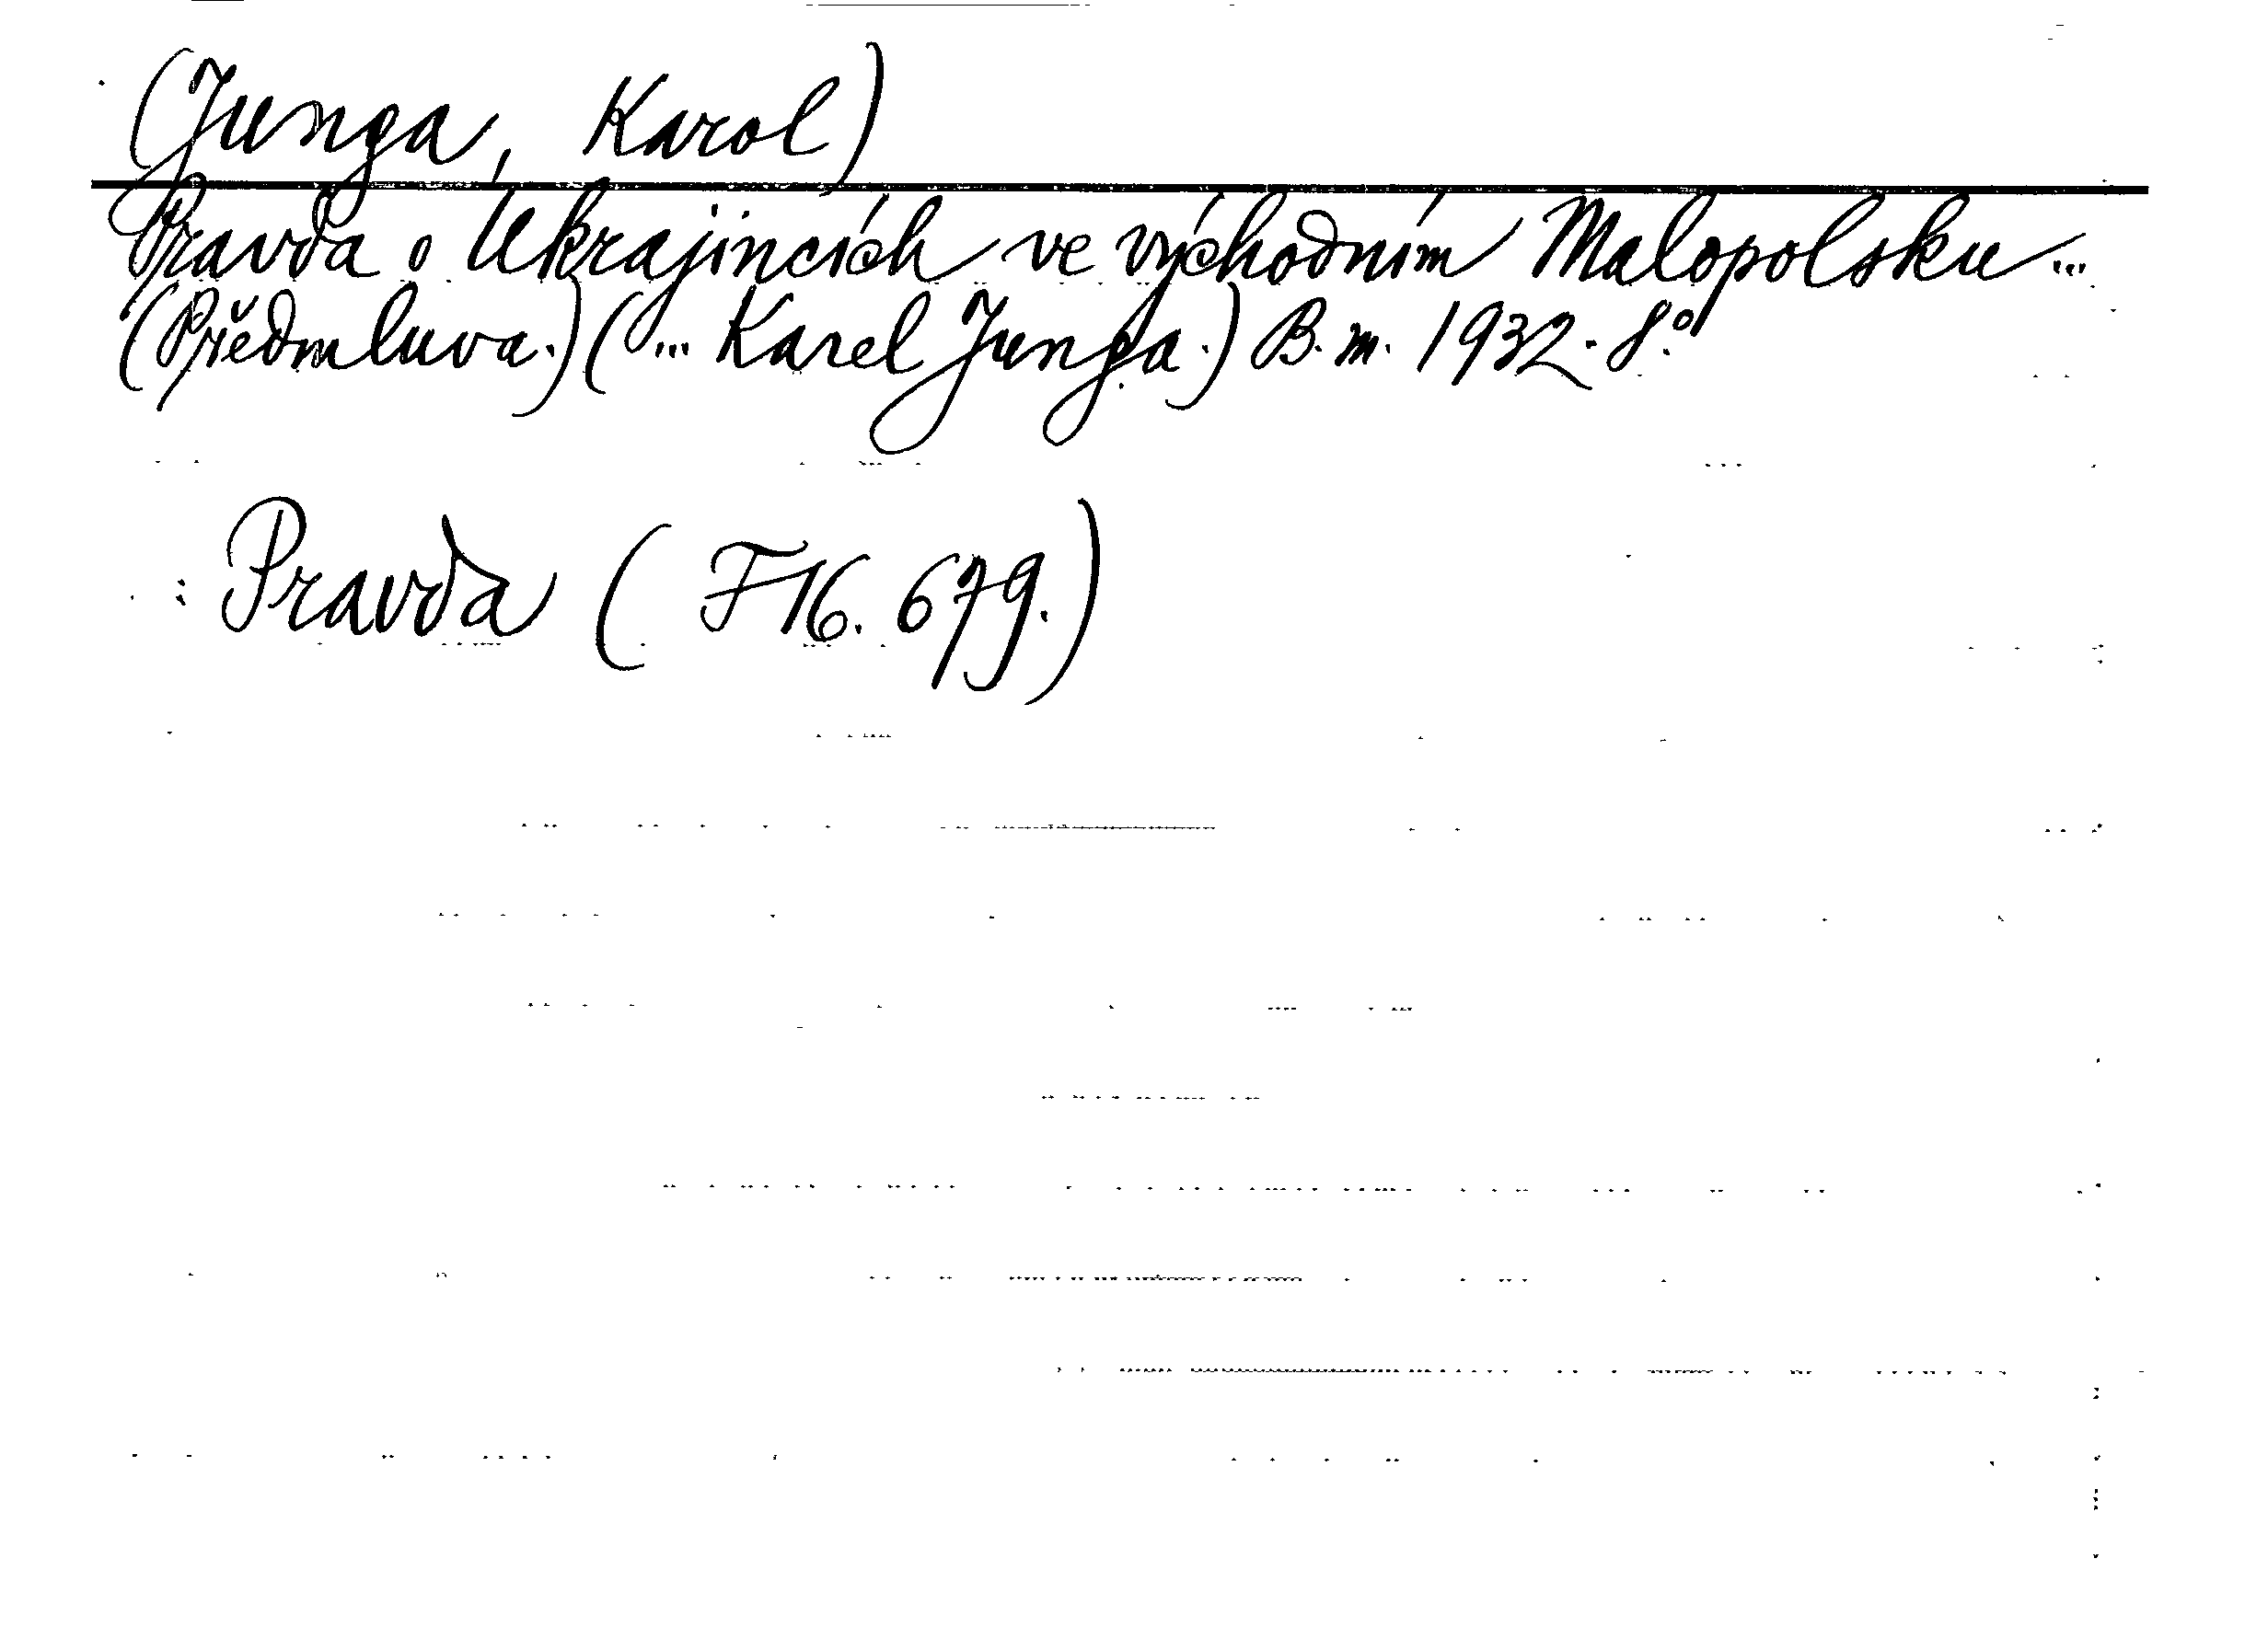 (Junga, Karol)
Pravda o Ukrajincích ve východním Malopolsku...
(Předmluva.) (... Karel Junga.) B. m. 1932. 8.°
Pravda (F 16. 679.)